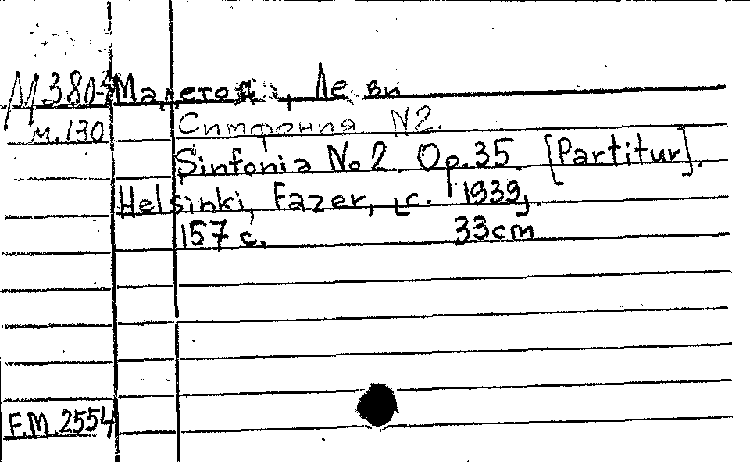 М380-3 Мадетоя, Леви
м.130 Симфония N2.
Sinfonia No 2. Op.35. [Partitur].
Helsinki, Fazer, [c. 1939].
157 с. 33cm
F.M.2554